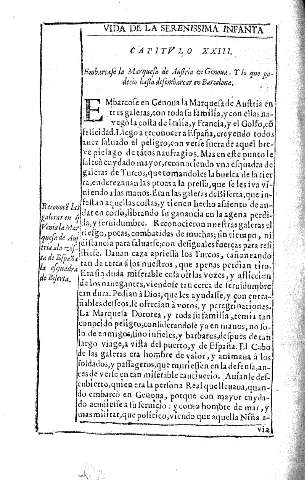 VIDA DE LA SERENISSIMA INFANTA
CAPITVLO XXIII.
Embarcase la Marquesa de Austria en Genoua. Y lo que padecio hasta desembarcar en Barcelona.
EMbarcose en Genoua la Marquesa de Austria en
tres galeras, con toda su familia, y con ellas nauegò
la costa de Italia, y Francia, y el Golfo, cõ
felicidad. Llegò a reconocer a España, creyendo todos
auer saltado el peligro, con verse fuera de aquel breue
pielago de tãtos naufragios. Mas en este punto le
saltcò cuydado mayor, reconociendo vna esquadra de
galeras de Turcos, que tomandoles la buelta de la tierra,
endereçauan las proas a la pressa, que se les iva viniendo
a las manos. Erã las galeras de Biserta, que infestan
aquellas costas, y tienen hecho assiento de andar
en corso, librando su ganancia en la agena perdida,
y seruidumbre. Reconocieron nuestras galeras el
riesgo, pocas, combatidas de muchas; sin tiempo, ni
distancia para saluarse, con desiguales fuerças para resistirse.
Dauan caza apriessa los Turcos, cañoneando
tan de cerca à los nuestros, que apenas perdian tiro.
Era sin duda miserable cosa oir las vozes, y afliccion
de los nauegantes, viendose tan cerca de seruidumbre
tan dura. Pedian à Dios, que les ayudasse, y con entrañables
deseos, se ofrecian à votos, y peregrinaciones.
La Marquesa Dorotea, y toda su familia, temia tan
conocido peligro, considerandose ya en manos, no solo
de enemigos, sino infieles, y barbaros, despues de tan
largo viage, à vista del puerto, y de España. El Cabo
de las galeras era hombre de valor, y animaua à los
soldados, y passageros, que muriessen en la defensa, antes
de verse en tan miserable cautiuerio. Auianle descubierto,
quien era la persona Real que lleuaua, quando
embarcò en Genoua, porque con mayor cuydado
acudiesse à su seruicio: y como hombre de mar, y
mas militar, que politico, viendo que aquella Niña avia
Reconocè las
galeras en q̃
va la Marquesa
de Austria
a vista
de España
la esquadra
de Biserta.